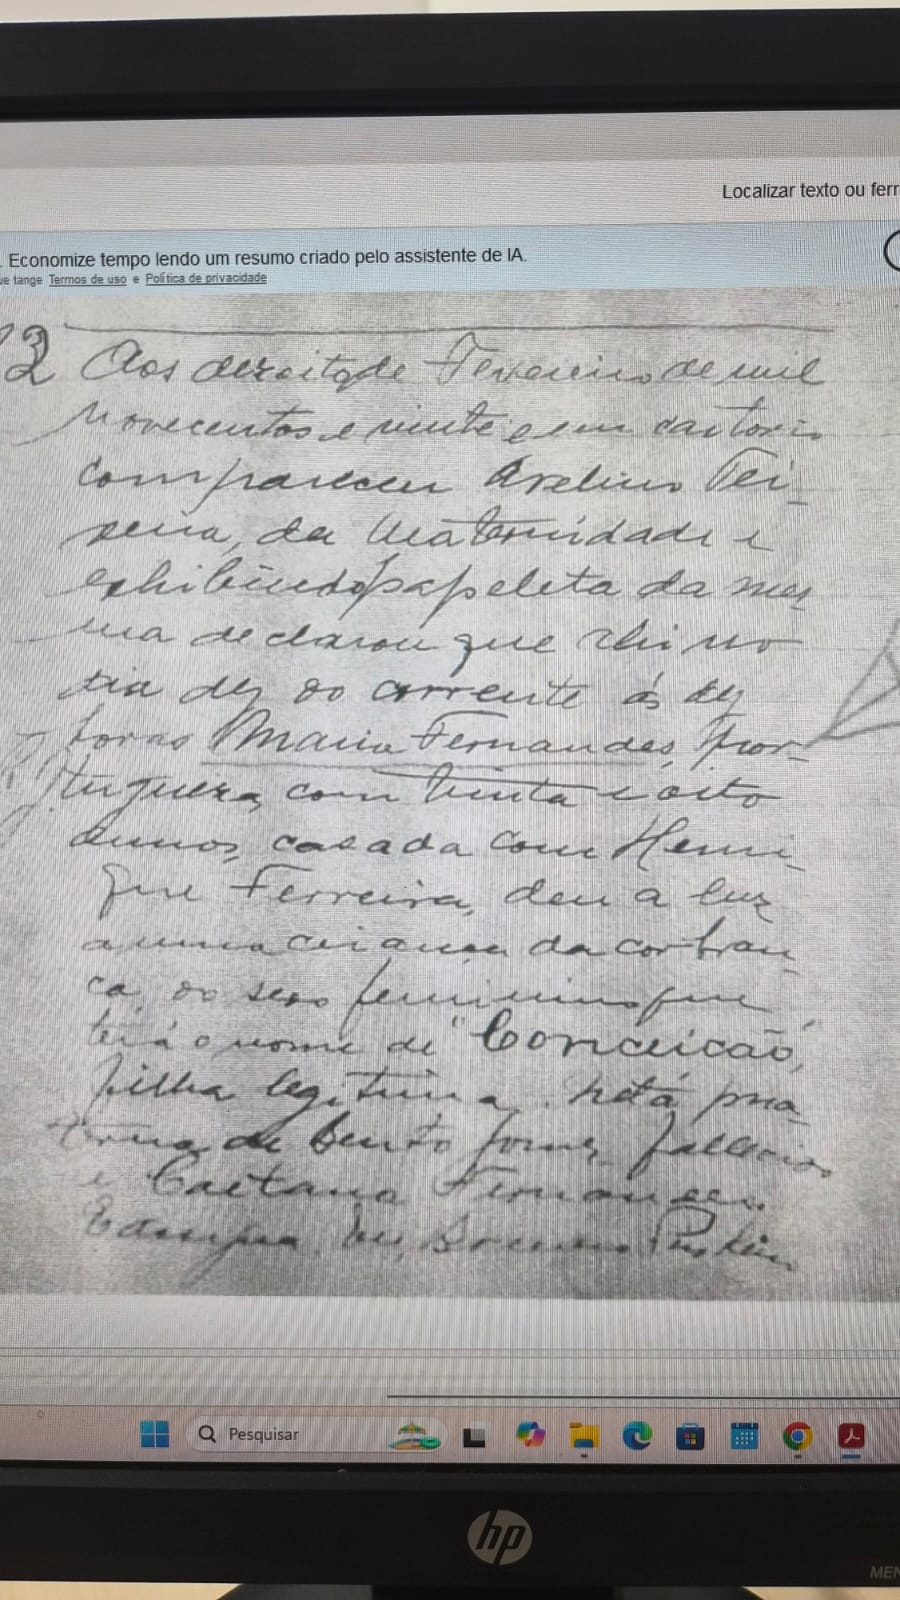 Localizar texto ou ferr
. Economize tempo lendo um resumo criado pelo assistente de IA.
ue tange Termos de uso e Política de privacidade
Aos dezoito de Fevereiro de mil
novecentos e vinte e em cartorio
compareceu Avelino Tei-
xeira, da Maternidade e
exhibindo papeleta da mes
ma declarou que alli no
dia dez do corrente ás dez
horas Maria Fernandes, por-
tugueza, com trinta e oito
annos, casada com Henri-
que Ferreira, deu a luz
a uma criança da cor bran
ca, do sexo feminino que
terá o nome de "Conceição,
filha legitima, neta
de Bento fallecido
e Caetana
Pesquisar
hp
MEN